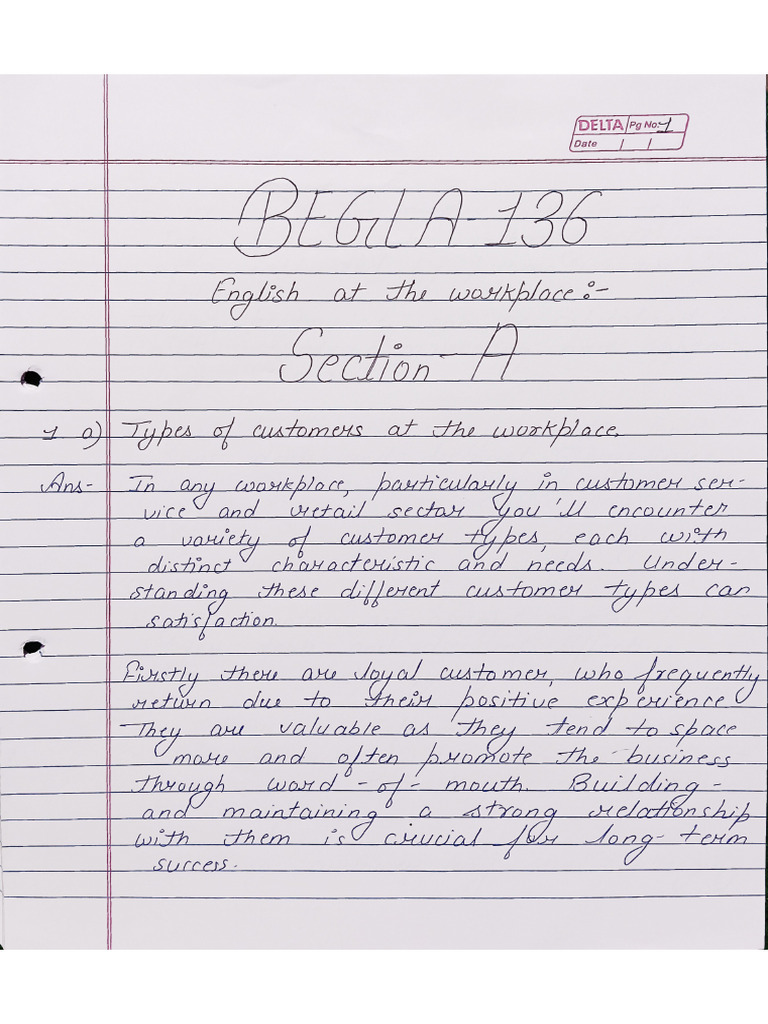 DELTA Pg No: 1
Date / /
BEGLA-136
English at the workplace:-
Section-A
1 a) Types of customers at the workplace.
Ans- In any workplace, particularly in customer ser-
vice and retail sector you'll encounter
a variety of customer types, each with
distinct characteristic and needs. Under-
standing these different customer types can
satisfaction.
Firstly there are loyal customer, who frequently
return due to their positive experience
They are valuable as they tend to space
more and often promote the business
through word-of-mouth. Building-
and maintaining a strong relationship
with them is crucial for long-term
success.